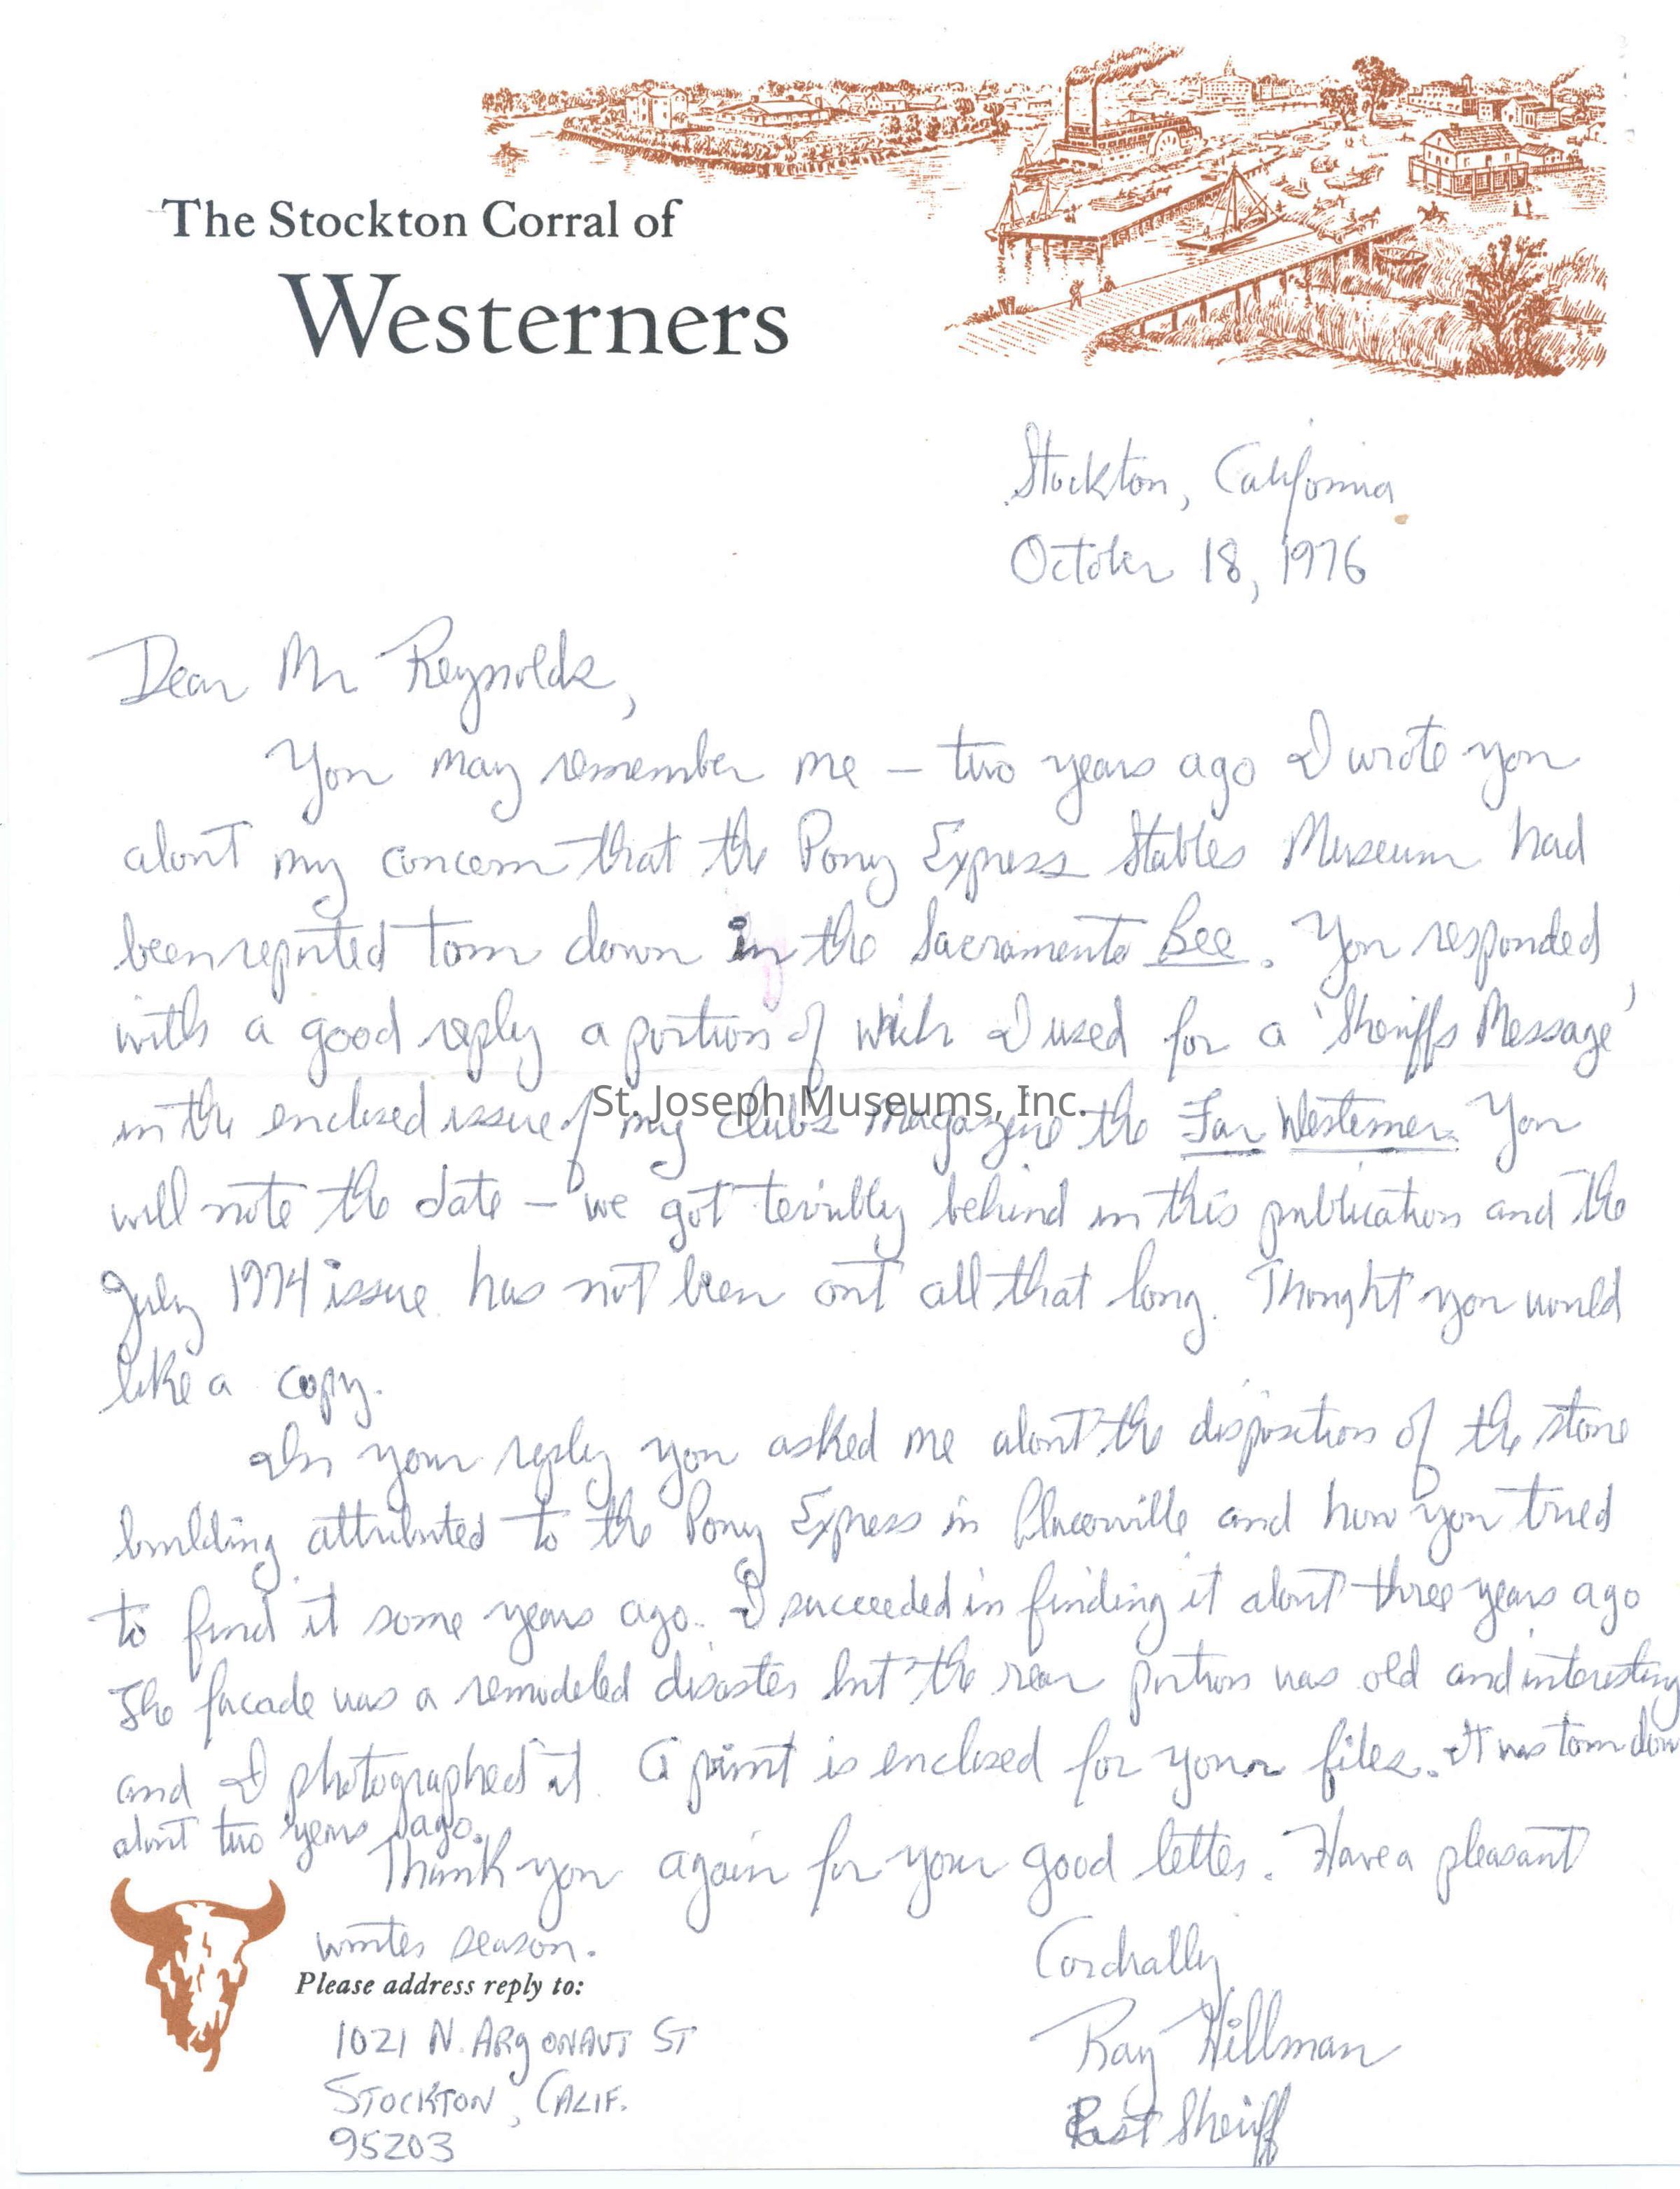 The Stockton Corral of
Westerners
Stockton, California
October 18, 1976
Dear Mr Reynolds,
You may remember me – two years ago I wrote you
about my concern that the Pony Express Stables Museum had
been reported torn down in the Sacramento Bee. You responded
with a good reply a portion of which I used for a 'Sheriffs Message'
in the enclosed issue of my clubs magazine the Far Westerner. You
will note the date – we got terribly behind in this publication and the
July 1974 issue has not been out all that long. Thought you would
like a copy.
In your reply you asked me about the disposition of the stone
building attributed to the Pony Express in Placerville and how you tried
to find it some years ago. I succeeded in finding it about three years ago
The facade was a remodeled disaster but the rear portion was old and interesting
and I photographed it. A print is enclosed for your files. It was torn down
about two years ago.
Thank you again for your good letter. Have a pleasant
winter season.
Cordially
Ray Hillman
Past Sheriff
Please address reply to:
1021 N. ARgONAUT ST
STOCKTON, CALIF.
95203
St. Joseph Museums, Inc.